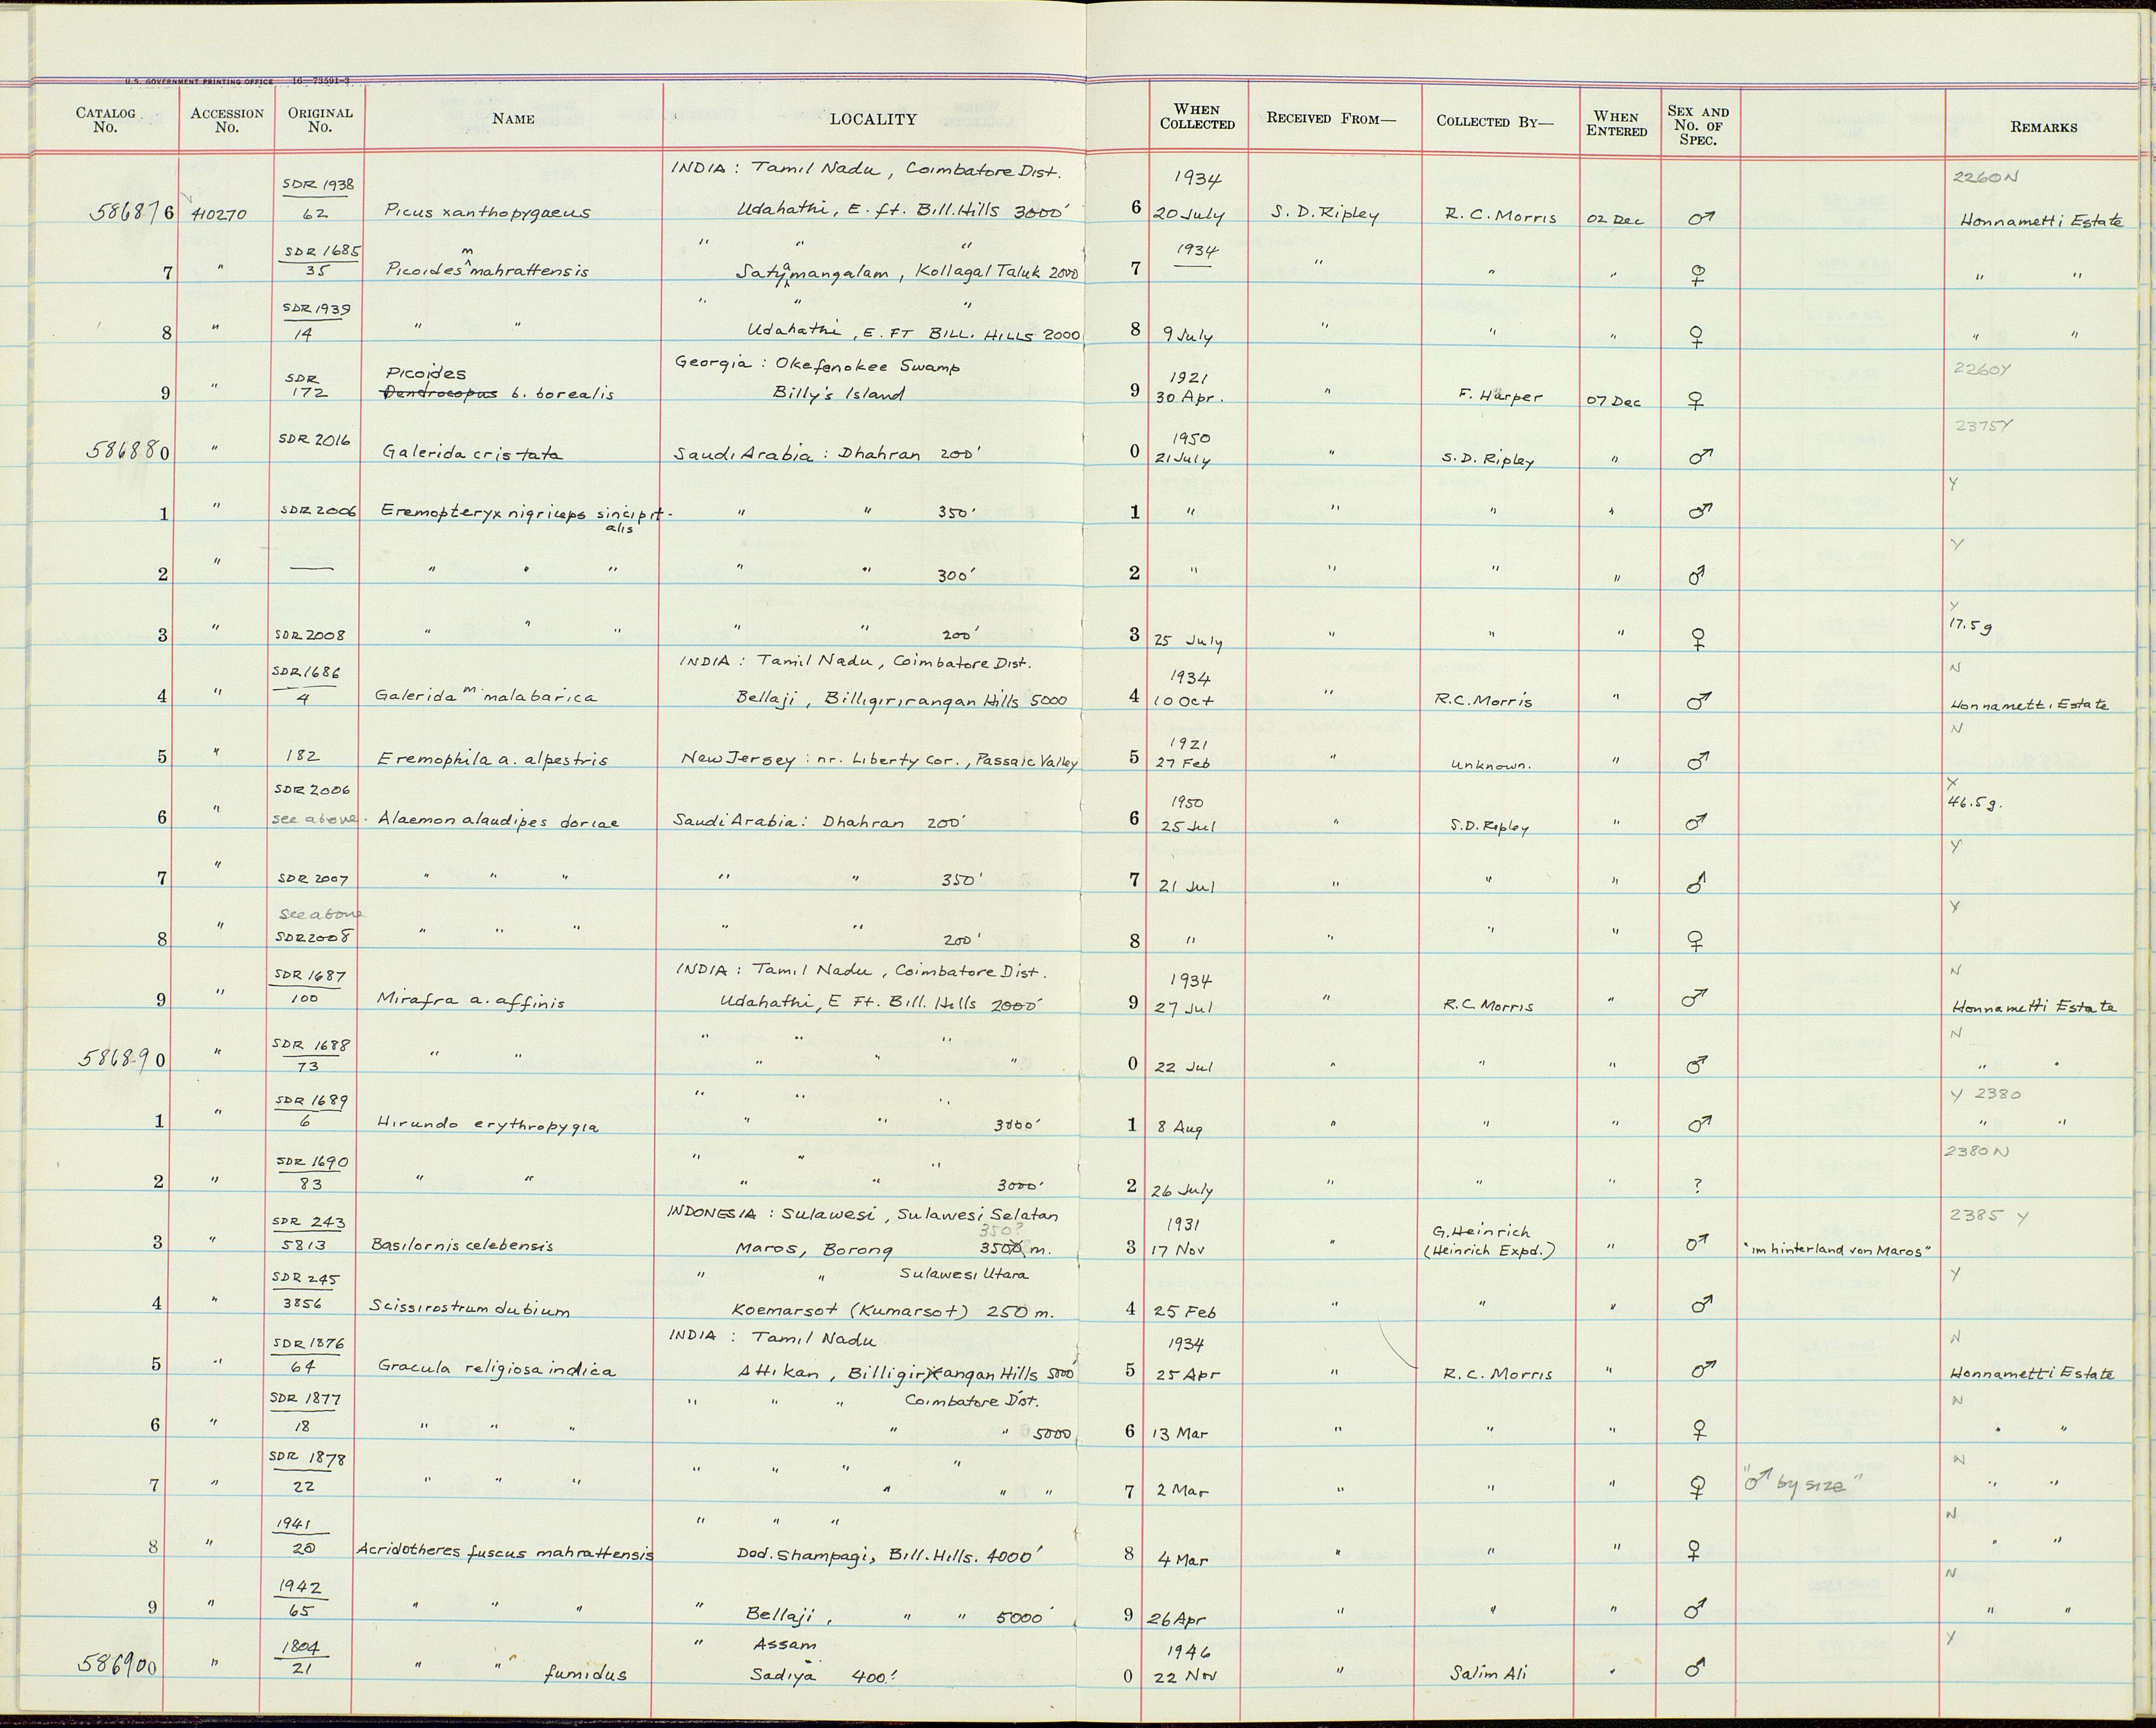 U.S. GOVERNMENT PRINTING OFFICE 16—73591-3
CATALOG No. ACCESSION No. ORIGINAL No. NAME LOCALITY WHEN COLLECTED RECEIVED FROM— COLLECTED BY— WHEN ENTERED SEX AND No. OF SPEC. REMARKS
SDR 1938 INDIA : Tamil Nadu , Coimbatore Dist. 1934 2260N
586876 410270 62 Picus xanthopygaeus Udahathi, E. ft. Bill. Hills 3000' 6 20 July S. D. Ripley R. C. Morris 02 Dec ♂ Honnametti Estate
SDR 1685 m " " " 1934
7 " 35 Picoides ^ mahrattensis Satyamangalam , Kollagal Taluk 2000 7 — " " " ♀ " "
SDR 1939 " " "
8 " 14 " " Udahathi , E. FT BILL. HILLS 2000 8 9 July " " " ♀ " "
SDR Picoides Georgia : Okefenokee Swamp 1921 2260Y
9 " 172 Dendrocopus b. borealis Billy's Island 9 30 Apr. " F. Harper 07 Dec ♀
SDR 2016 1950 2375Y
586880 " Galerida cristata Saudi Arabia : Dhahran 200' 0 21 July " S. D. Ripley " ♂
Y
1 " SDR 2006 Eremopteryx nigriceps sincipit- " " 350' 1 " " " " ♂
alis
Y
2 " — " " " " " 300' 2 " " " " ♂
Y
3 " SDR 2008 " " " " " 200' 3 25 July " " " ♀ 17.5 g
SDR 1686 INDIA : Tamil Nadu , Coimbatore Dist. 1934 N
4 " 4 Galerida m. malabarica Bellaji , Billigirirangan Hills 5000 4 10 Oct " R.C. Morris " ♂ Honnametti Estate
1921 N
5 " 182 Eremophila a. alpestris New Jersey : nr. Liberty Cor. , Passaic Valley 5 27 Feb " unknown. " ♂
SDR 2006 1950 Y
6 " see above. Alaemon alaudipes doriae Saudi Arabia : Dhahran 200' 6 25 Jul " S.D. Ripley " ♂ 46.5 g.
Y
7 " SDR 2007 " " " " " 350' 7 21 Jul " " " ♂
see above Y
8 " SDR 2008 " " " " " 200' 8 " " " " ♀
SDR 1687 INDIA : Tamil Nadu , Coimbatore Dist. 1934 N
9 " 100 Mirafra a. affinis Udahathi, E Ft. Bill. Hills 2000' 9 27 Jul " R.C. Morris " ♂ Honnametti Estate
SDR 1688 " " " N
586890 " 73 " " " " " 0 22 Jul " " " ♂ " "
SDR 1689 " " " Y 2380
1 " 6 Hirundo erythropygia " " 3000' 1 8 Aug " " " ♂ " "
SDR 1690 " " " 2380 N
2 " 83 " " " " 3000' 2 26 July " " " ?
SDR 243 INDONESIA : Sulawesi , Sulawesi Selatan 1931 2385 Y
350?
3 " 5813 Basilornis celebensis Maros, Borong 3500 m. 3 17 Nov " G. Heinrich (Heinrich Expd.) " ♂ "im hinterland von Maros"
SDR 245 " " Sulawesi Utara Y
4 " 3856 Scissirostrum dubium Koemarsot (Kumarsot) 250 m. 4 25 Feb " " " ♂
SDR 1876 INDIA : Tamil Nadu 1934 N
5 " 64 Gracula religiosa indica Attikan , Billigirirangan Hills 5000' 5 25 Apr " R. C. Morris " ♂ Honnametti Estate
SDR 1877 " " " Coimbatore Dist. N
6 " 18 " " " " " 5000 6 13 Mar " " " ♀ " "
SDR 1878 " " " " N
7 " 22 " " " " " " 7 2 Mar " " " ♀ "♂ by size" " "
1941 " " " N
8 " 20 Acridotheres fuscus mahrattensis Dod. Shampagi, Bill. Hills. 4000' 8 4 Mar " " " ♀ " "
1942 N
9 " 65 " " " " Bellaji , " " 5000' 9 26 Apr " " " ♂ " "
1804 " Assam 1946 Y
586900 " 21 " " fumidus Sadiya 400' 0 22 Nov " Salim Ali " ♂